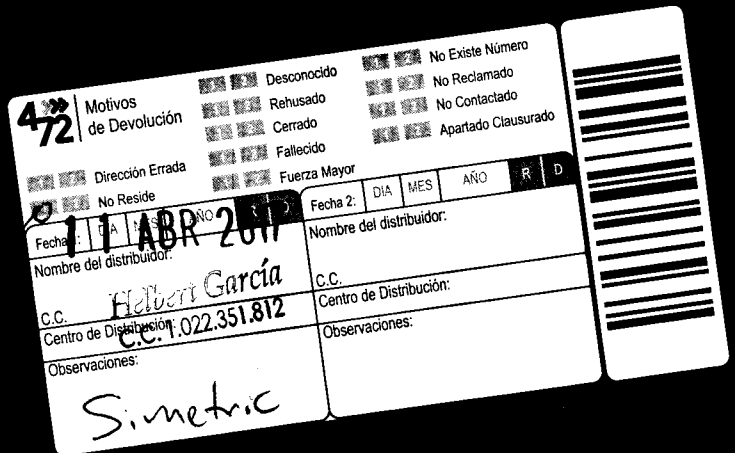 472
Motivos
de Devolución
Desconocido
Rehusado
Cerrado
Fallecido
Fuerza Mayor
No Existe Número
No Reclamado
No Contactado
Apartado Clausurado
Dirección Errada
No Reside
Fecha 1: DIA MES AÑO R D
11 ABR 2017
Nombre del distribuidor:
Helbert García
C.C.
C.C. 1.022.351.812
Centro de Distribución:
Observaciones:
Simetric
Fecha 2: DIA MES AÑO R D
Nombre del distribuidor:
C.C.
Centro de Distribución:
Observaciones: